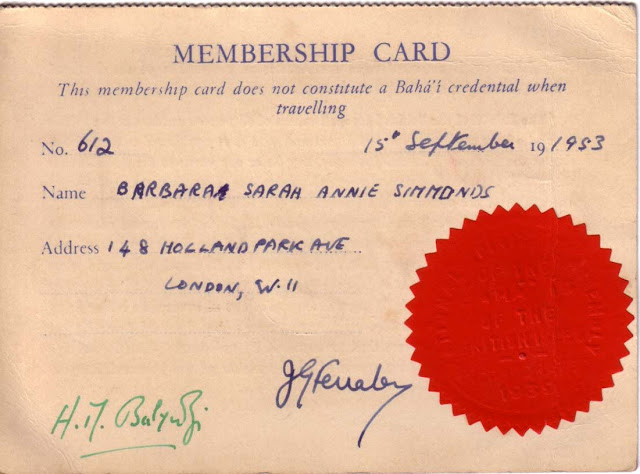 MEMBERSHIP CARD
This membership card does not constitute a Bahá'í credential when
travelling
No. 612 15° September 19 1953
Name BARBARA SARAH ANNIE SIMMONDS
Address 148 HOLLAND PARK AVE
LONDON, W.11
OF THE
JGFerraby
H.M. Balyuzi